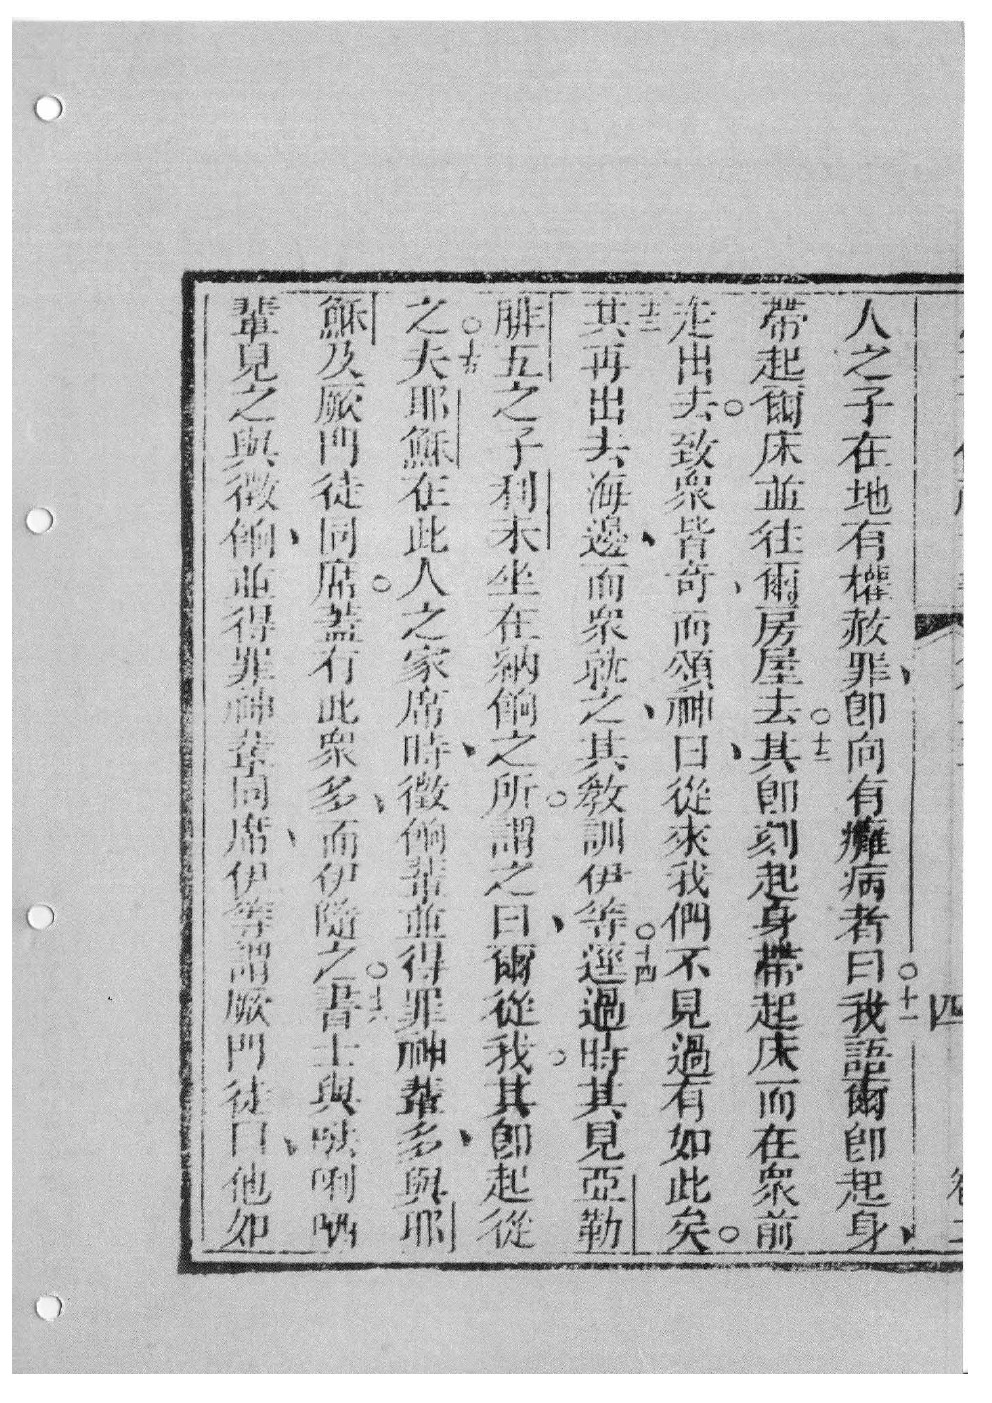 人之子在地有權赦罪、卽向有癱病者曰○十一我語爾卽起身、
帶起爾床並往爾房屋去○十二其卽刻起身帶起床而在衆前
走出去○致衆皆奇、而頌神曰、從來我們不見過有如此矣○
十三其再出去海邊、而衆就之、其教訓伊等○十四逕過時其見亞勒
腓五之子利未坐在納餉之所○謂之曰、爾從我○其卽起從
之○十五夫耶穌在此人之家席時、徵餉輩並得罪神輩多、與耶
穌及厥門徒同席○蓋有此衆多、而伊隨之○十六書士與𠵽唎哂
輩見之與徵餉、並得罪神輩同席、伊等謂厥門徒曰、他如
四